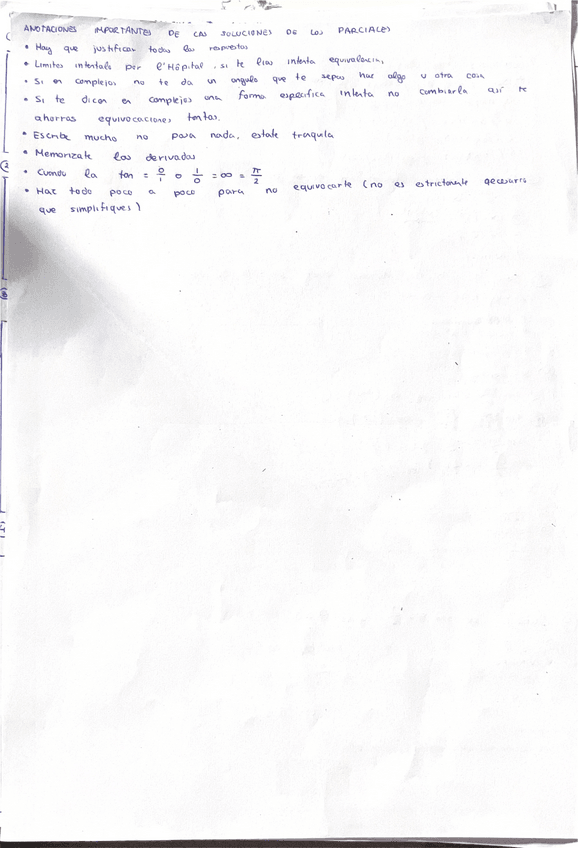 ANOTACIONES IMPORTANTES DE LAS SOLUCIONES DE LOS PARCIALES
• Hay que justificar todas las respuestas
• Limites intentals per l'Hôpital. si te lias intenta equivalencia,
• Si en complejos no te da un angulo que te sepas haz algo u otra cosa
• Si te dicen en complejos una forma especifica intenta no cambiarla así te
ahorras equivocaciones tontas.
• Escribe mucho no pasa nada, estate tranquila
• Memorizate las derivadas
• Cuando la tan = 0/1 o 1/0 = ∞ = π/2
• Haz todo poco a poco para no equivocarte (no es estrictamente necesario
que simplifiques)